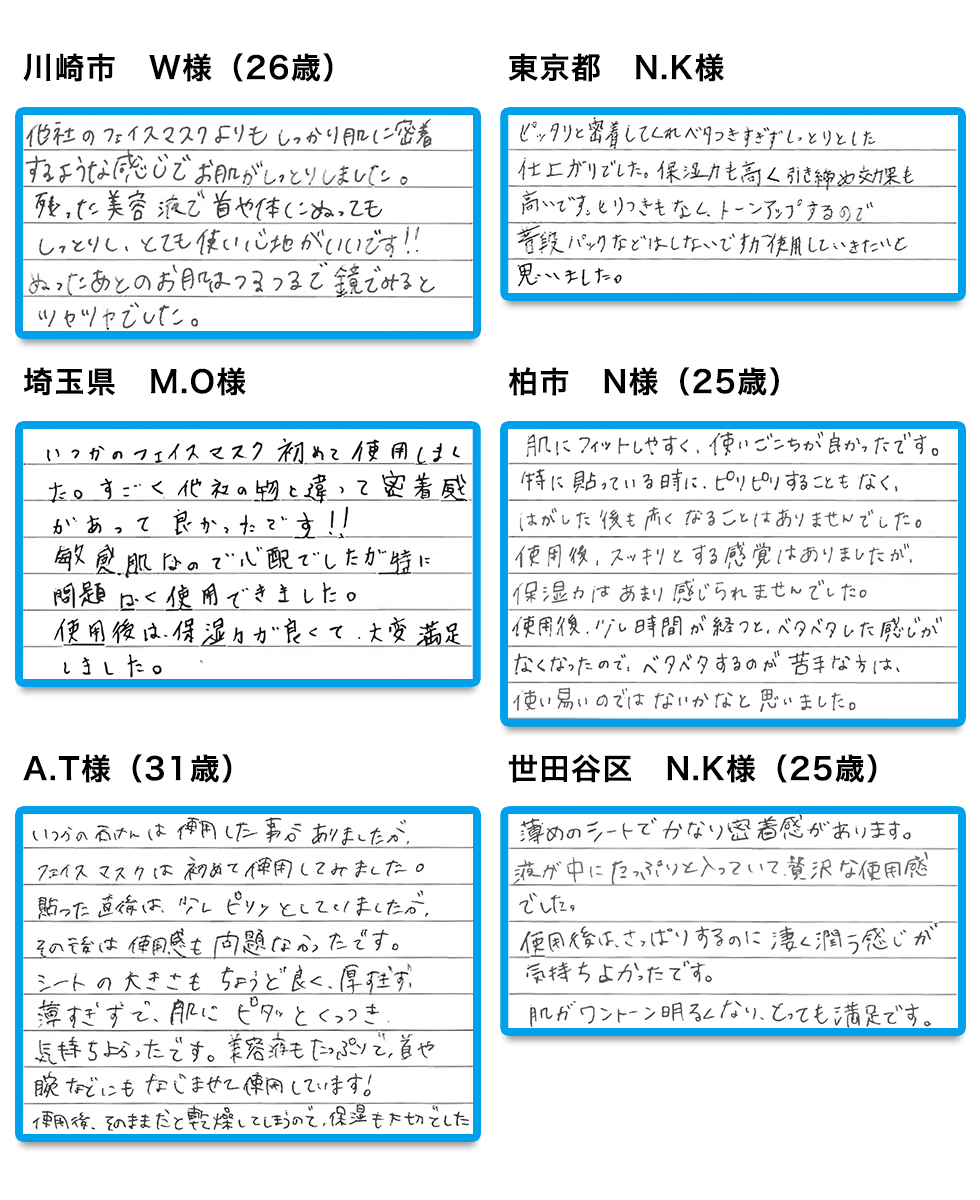 川崎市　W様（26歳）
他社のフェイスマスクよりもしっかり肌に密着
するような感じでお肌がしっとりしました。
残った美容液で首や体にぬっても
しっとりし、とても使い心地がいいです!!
ぬったあとのお肌はつるつるで鏡でみると
ツヤツヤでした。
東京都　N.K様
ピッタリと密着してくれベタつきすぎずしっとりとした
仕上がりでした。保湿力も高く引き締め効果も
高いです。ヒリつきもなく、トーンアップするので
普段パックなどはしないですが使用していきたいと
思いました。
埼玉県　M.O様
いつかのフェイスマスク初めて使用しまし
た。すごく他社の物と違って密着感
があって良かったです!!
敏感肌なので心配でしたが特に
問題なく使用できました。
使用後は、保湿力が良くて、大変満足
しました。
柏市　N様（25歳）
肌にフィットしやすく、使いごこちが良かったです。
特に貼っている時に、ピリピリすることもなく、
はがした後も赤くなることはありませんでした。
使用後、スッキリとする感覚はありましたが、
保湿力はあまり感じられませんでした。
使用後、少し時間が経つと、ベタベタした感じが
なくなったので、ベタベタするのが苦手な方は、
使い易いのではないかなと思いました。
A.T様（31歳）
いつかの石けんは使用した事がありましたが、
フェイスマスクは初めて使用してみました。
貼った直後は、少しピリッとしていましたが、
その後は使用感も問題なかったです。
シートの大きさもちょうど良く、厚すぎず、
薄すぎずで、肌にピタッとくっつき、
気持ちよかったです。美容液もたっぷりで、首や
腕などにもなじませて使用しています!
使用後、そのままだと乾燥してしまうので、保湿も大切でした
世田谷区　N.K様（25歳）
薄めのシートでかなり密着感があります。
液が中にたっぷりと入っていて贅沢な使用感
でした。
使用後は、さっぱりするのに凄く潤う感じが
気持ちよかったです。
肌がワントーン明るくなり、とっても満足です。